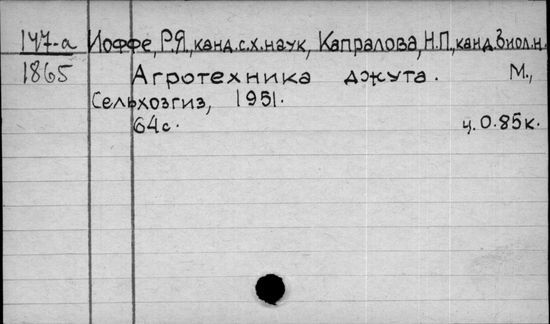 147-а Иоффе, Р.Я, канд.с.х.наук, Капралова, Н.П, канд.биол.н.
1865 Агротехника джута. М.,
Сельхозгиз, 1951.
64с. ц.0.85к.